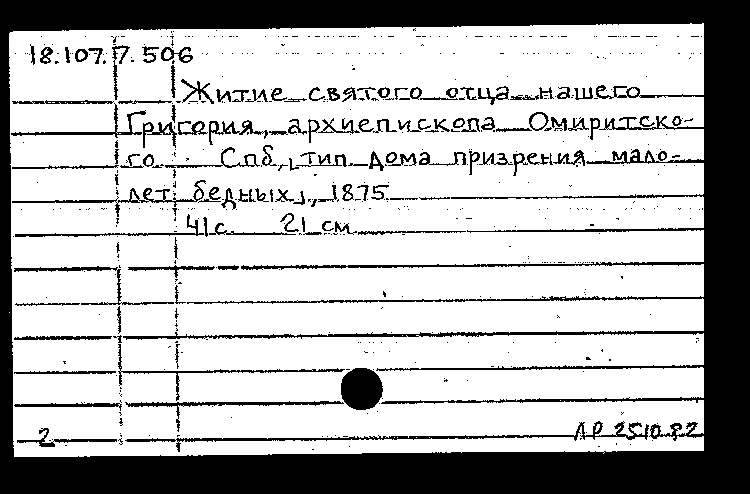 18.107.7.506
Житие святого отца нашего
Григория, архиепископа Омиритско-
го. Спб., [тип. Дома призрения мало-
лет. бедных], 1875
41 с. 21 см.
2 ЛР 25.10.82